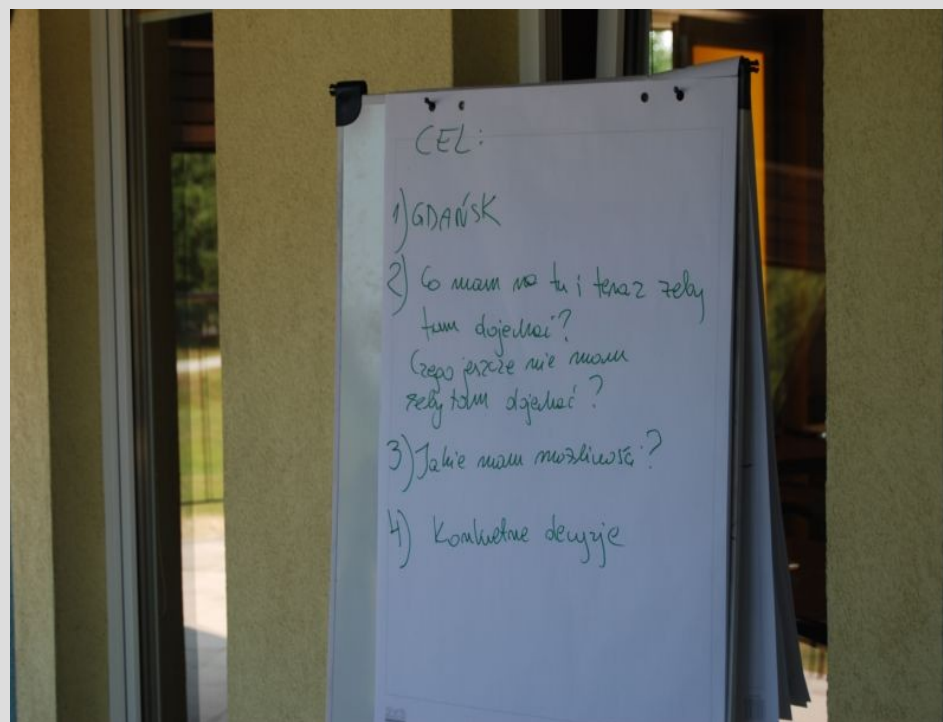 CEL:
1) GDAŃSK
2) Co mam na tu i teraz żeby
tam dojechać?
Czego jeszcze nie mam
żeby tam dojechać?
3) Jakie mam możliwości?
4) Konkretne decyzje